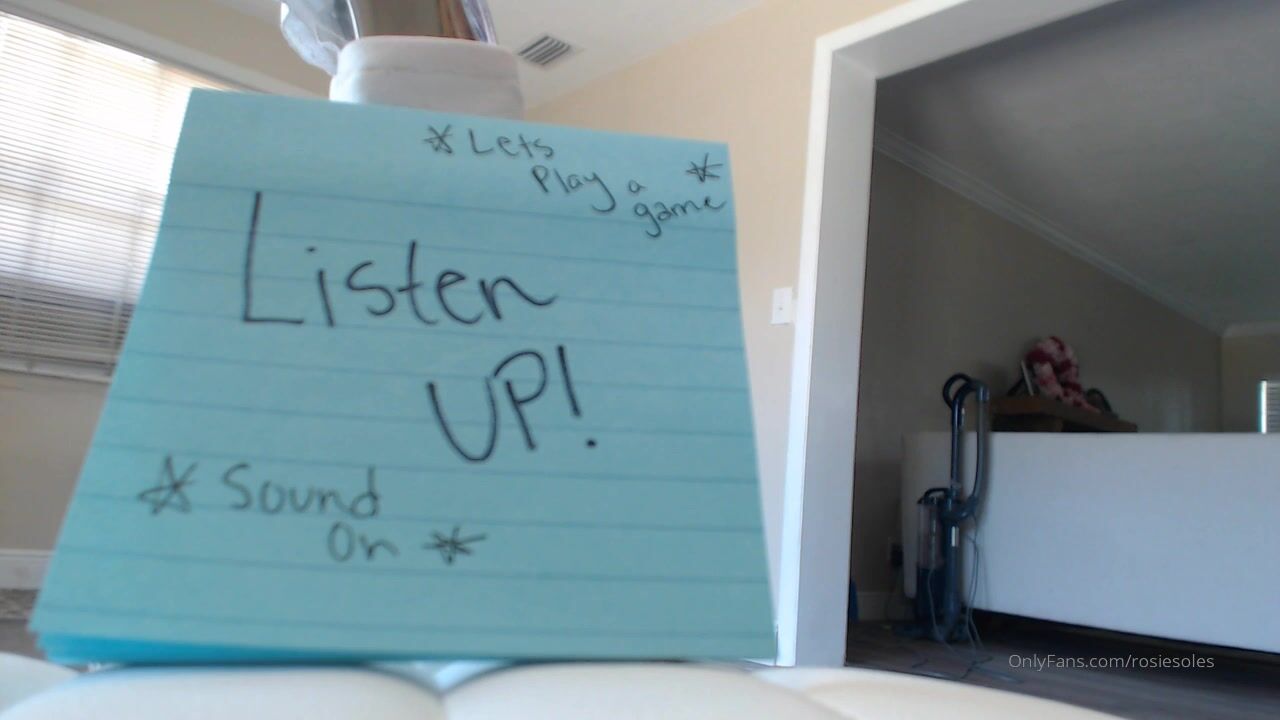 *Lets
Play a *
game
Listen
UP!
* Sound
On *
OnlyFans.com/rosiesoles